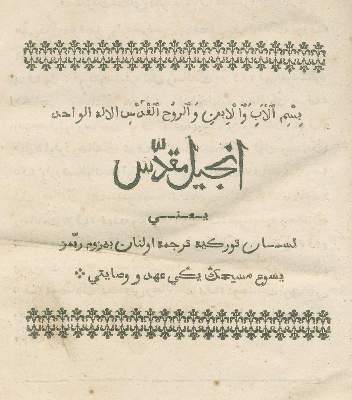 بِسْمِ ٱلْآبِ وَٱلْاِبْنِ وَٱلرُّوحِ ٱلْقُدُسِ الاله الواحد
انجيل مقدّس
يعني
لسان توركيه ترجمه اولنان بزوم ربّمز
يسوع مسيحڭ يڭي عهد و وصايتي